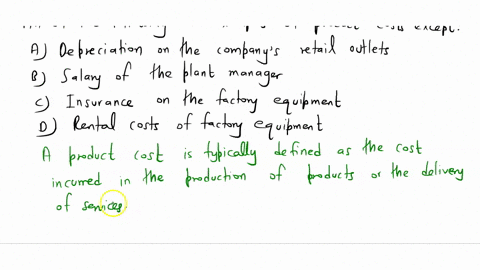 costs except:
A) Depreciation on the company's retail outlets
B) Salary of the plant manager
C) Insurance on the factory equipment
D) Rental costs of factory equipment
A product cost is typically defined as the cost
incurred in the production of products or the delivery
of services